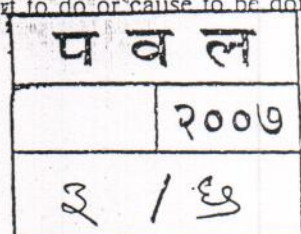 to do or cause to be do
प व ल
२००७
३ / ६५